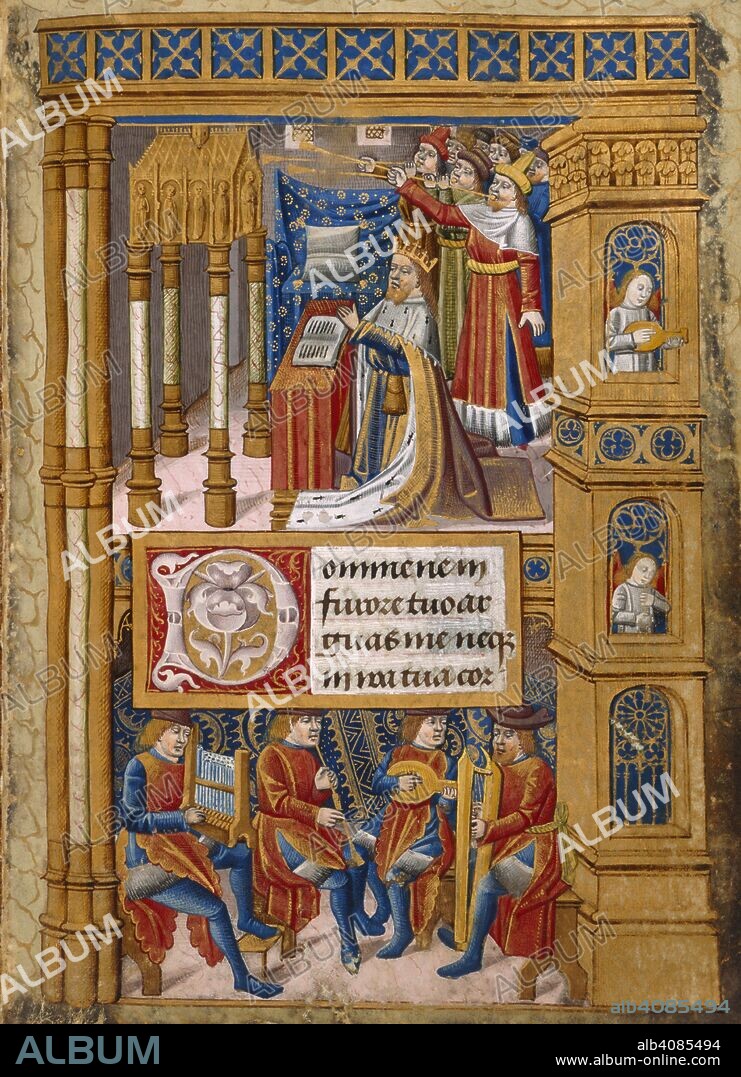 Domine ne in
furore tuo ar
guas me neqꝫ
in ira tua cor-
ALBUM
alb4085494
ALBUM
alb4085494
www.album-online.com